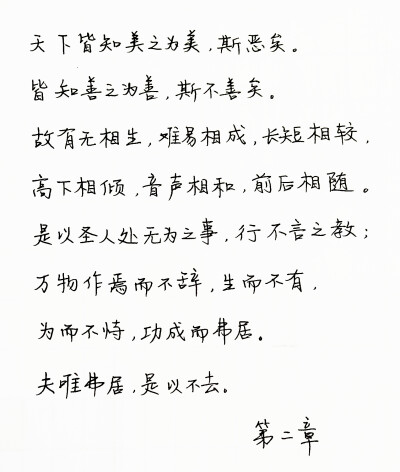 天下皆知美之为美，斯恶矣。
皆知善之为善，斯不善矣。
故有无相生，难易相成，长短相较，
高下相倾，音声相和，前后相随。
是以圣人处无为之事，行不言之教；
万物作焉而不辞，生而不有，
为而不恃，功成而弗居。
夫唯弗居，是以不去。
第二章